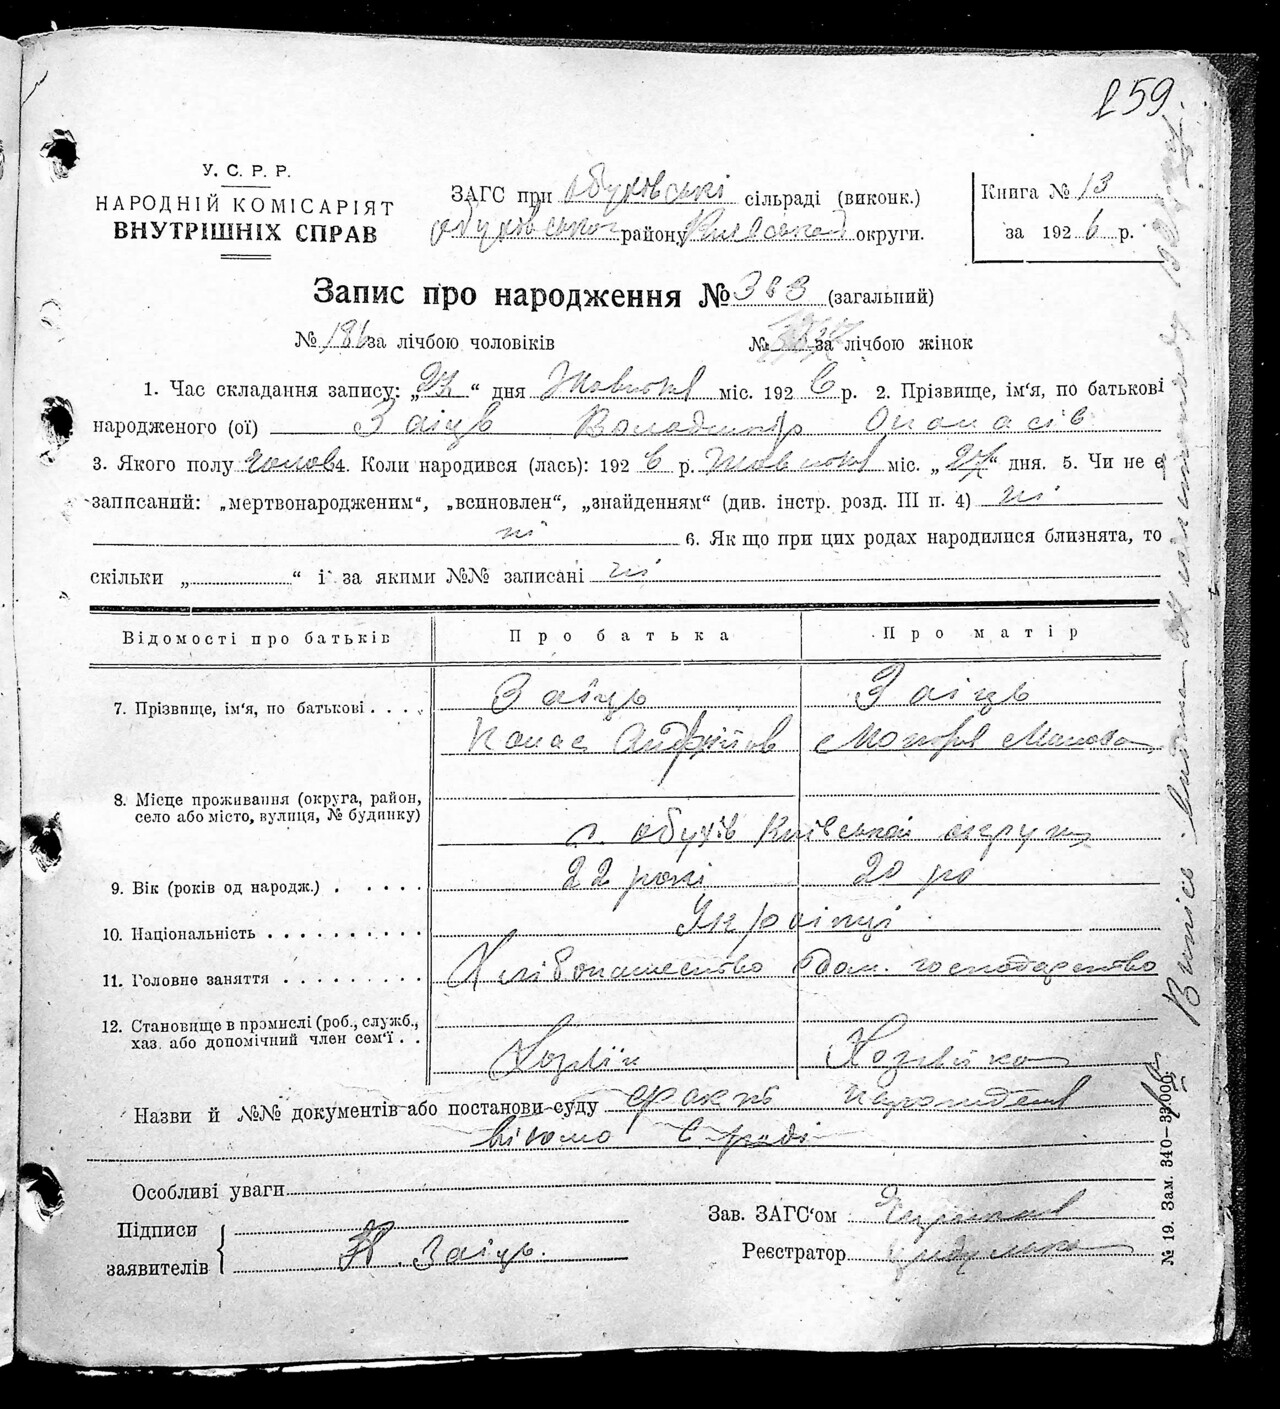 259
У. С. Р. Р.
НАРОДНІЙ КОМІСАРІЯТ
ВНУТРІШНІХ СПРАВ
ЗАГС при обуховські сільраді (виконк.)
обуховської району Київської округи.
Книга № 13
за 1926 р.
Запис про народження № 383 (загальний)
№ 186 за лічбою чоловіків
№ за лічбою жінок
1. Час складання запису: „27“ дня Жовтня міс. 1926 р. 2. Прізвище, ім‘я, по батькові
народженого (ої) Заіць Володимір Опанасів
3. Якого полу чолов 4. Коли народився (лась): 1926 р. Жовтня міс. „27“ дня. 5. Чи не є
записаний: „мертвонародженим“, „всиновлен“, „знайденням“ (див. інстр. розд. III п. 4) ні
ні 6. Як що при цих родах народилися близнята, то
скільки „ “ і за якими №№ записані ні
Відомості про батьків Про батька Про матір
7. Прізвище, ім‘я, по батькові . . . . Заіць Заіць
Панас Андрійов Мотря
8. Місце проживання (округа, район,
село або місто, вулиця, № будинку)
с. обухів Київськой округи
9. Вік (років од народж.) . . . . . 22 рокі 20 ро
10. Національність . . . . . . . . . . Украінці
11. Головне заняття . . . . . . . . . Хлібопашество Дом. господарство
12. Становище в промислі (роб., служб.,
хаз. або допомічний член сем‘ї . . Хозяїн Хозяйка
Назви й №№ документів або постанови суду факт народження
відомо С-раді
Особливі уваги
Підписи
заявителів
Заіць.
Зав. ЗАГС‘ом
Реєстратор
№ 19. Зам. 340—33.000.
Випись видана 24